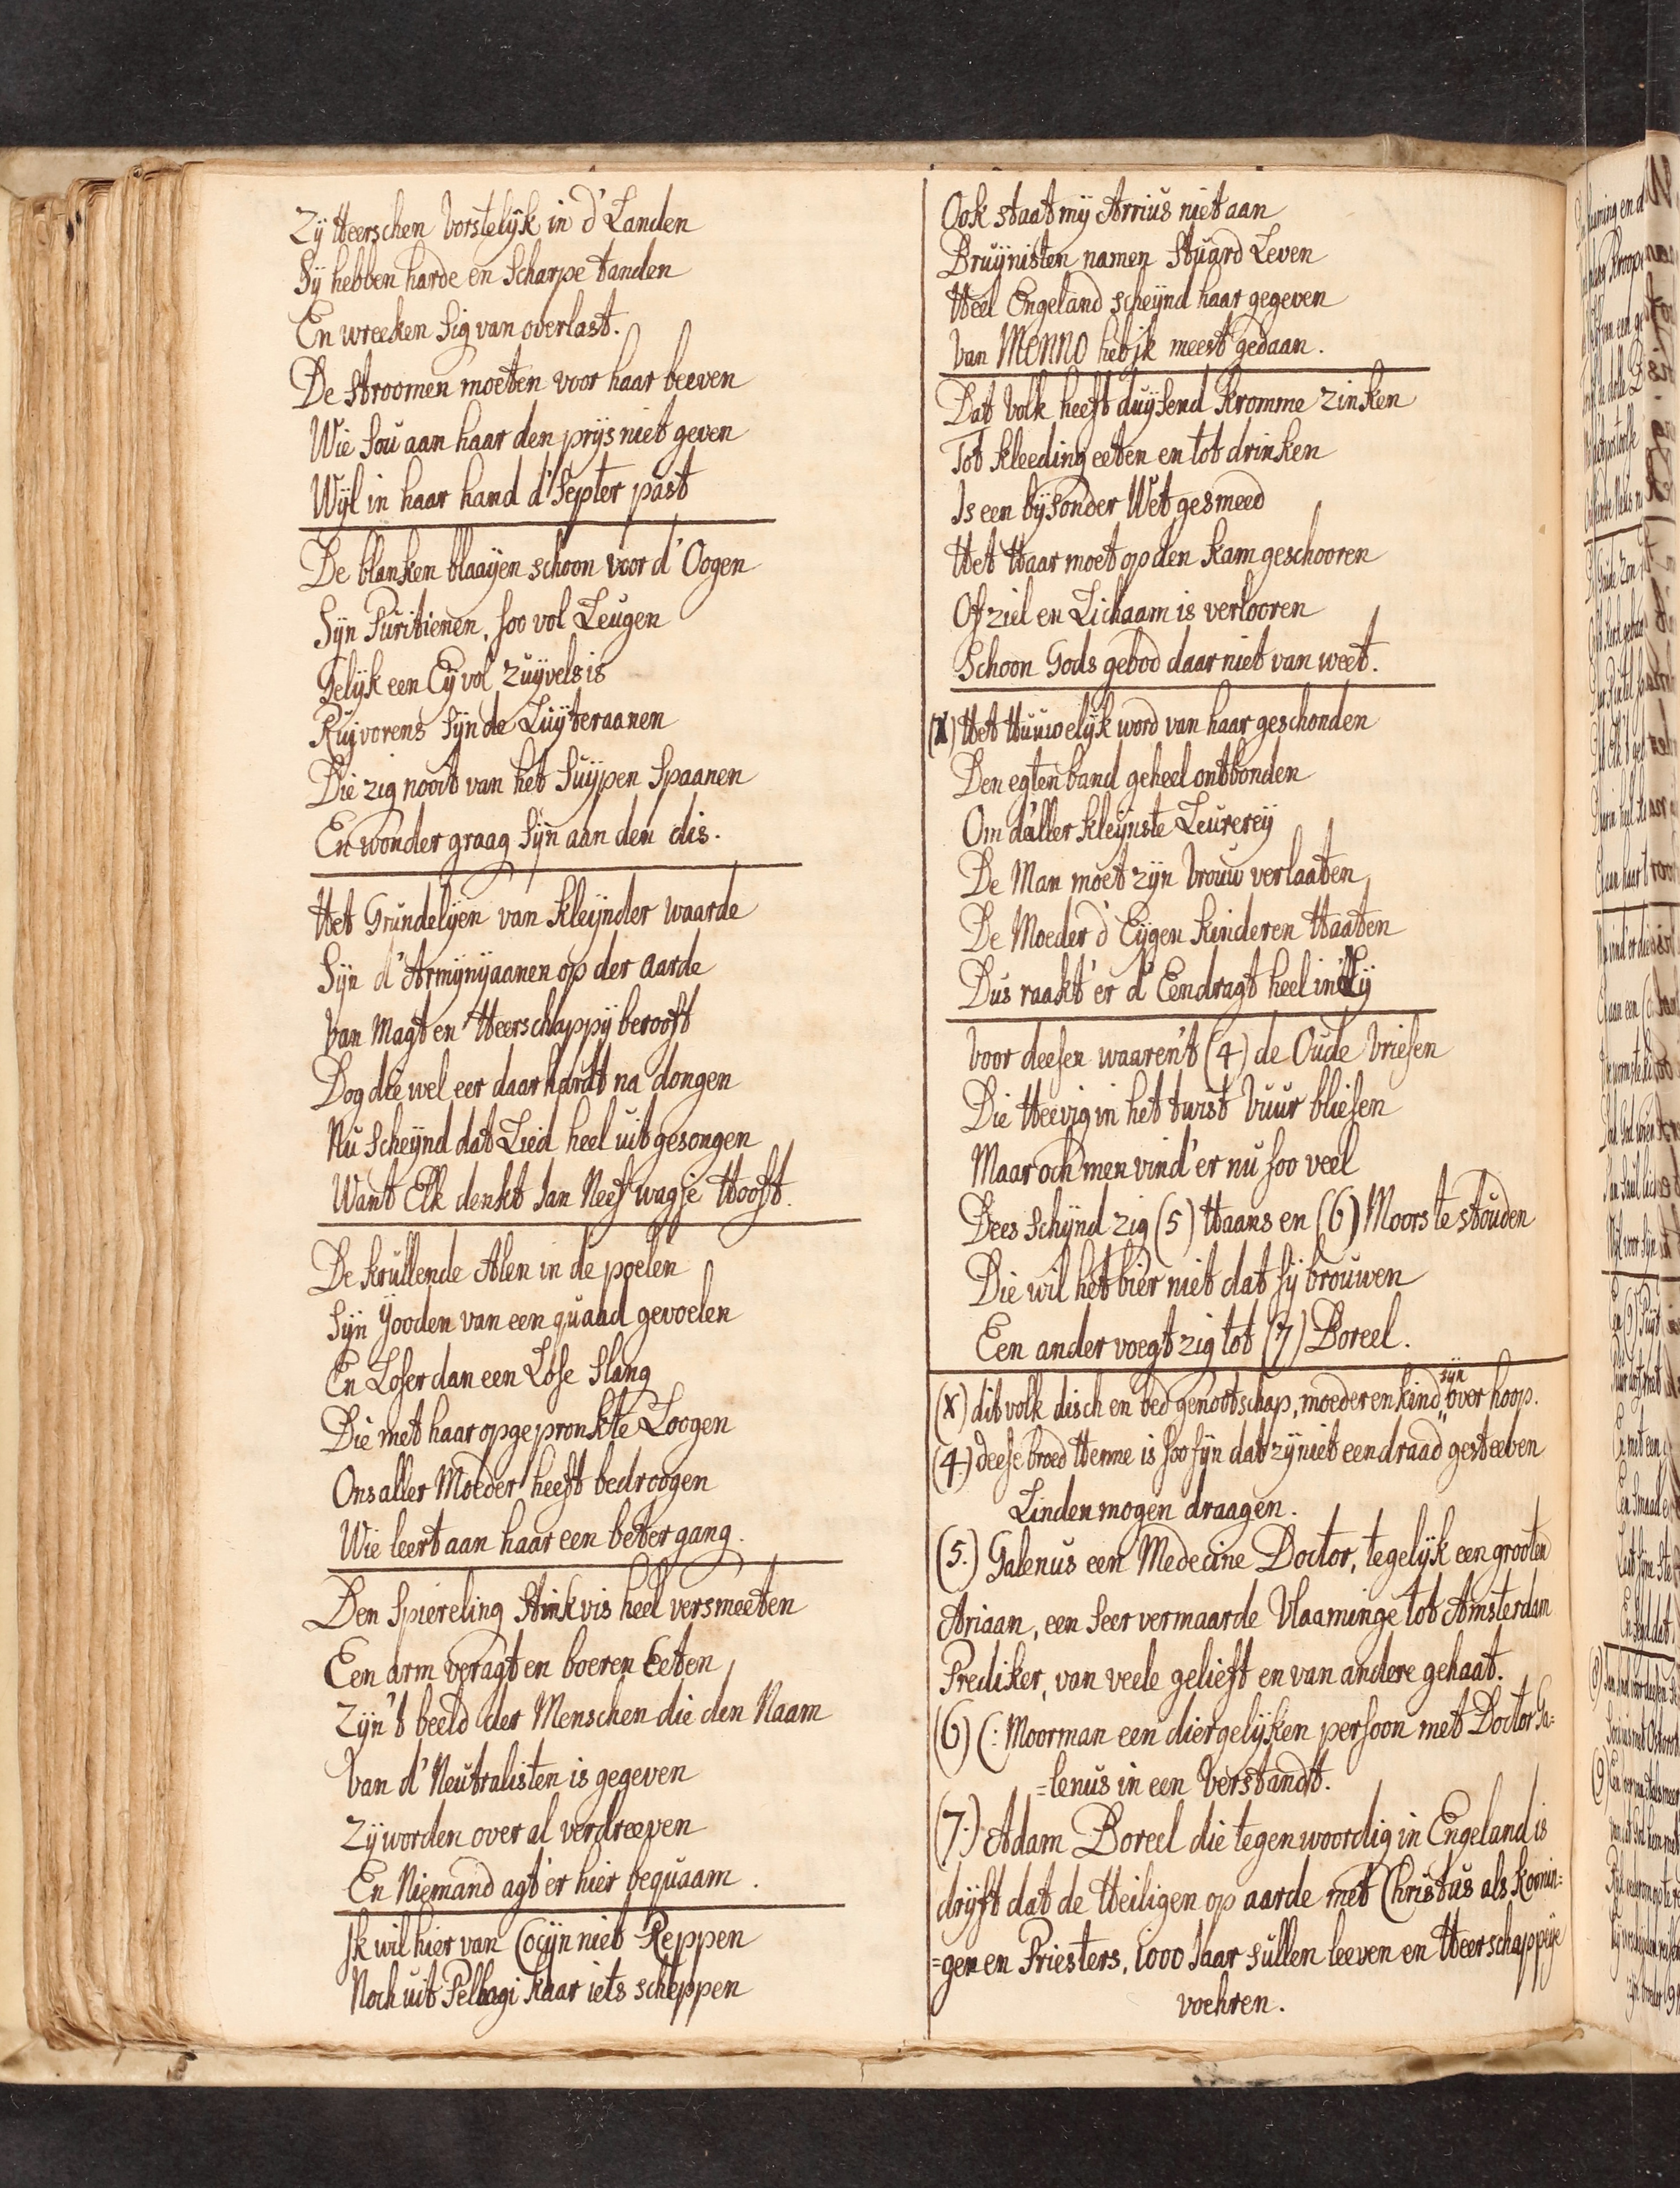 Zÿ Heerschen Vorstelÿk in d'Landen
Sÿ hebben harde en Scharpe tanden
En wreeken Sig van overlast.
De Stroomen moeten voor haar beeven
Wie Sou aan haar den prÿs niet geven
Wÿl in haar hand d'Septer past
De blanken blaaÿen schoon voor d'Oogen
Sÿn Puritienen, soo vol Leugen
Gelÿk een Eÿ vol Zuÿvels is
Ruÿvorens Sÿn de Luÿteraanen
Die zig nooit van het Suÿpen Spaanen
En wonder graag Sÿn aan den dis.
Het Grundelÿen van Kleÿnder waarde
Sÿn d'Armÿnÿaanen op der aarde
Van Magt en Heerschappÿ berooft
Dog die wel eer daar hardt na dongen
Nu Scheÿnd dat Lied heel uit gesongen
Want Elk denkt Jan Neef wagje Hooft.
De krullende Alen in de poelen
Sÿn Jooden van een quaad gevoelen
En Loser dan een Lose Slang
Die met haar opgepronkte Loogen
Ons aller Moeder heeft bedroogen
Wie leert aan haar een beter gang.
Den Spiereling Stinkvis heel versmeeten
Een arm veragt en boeren Eeten
Zÿn't beeld der Menschen die den Naam
Van d'Neutralisten is gegeven
Zÿ worden over al verdreeven
En Niemand agt'er hier bequaam.
Ik wil hier van Cocÿn niet Reppen
Noch uit Pelbagi kaar iets scheppen
Ook staat mÿ Arrius niet aan
Bruÿnisten namen Stuard Leven
Heel Engeland scheÿnd haar gegeven
Van Menno heb ik meest gedaan.
Dat Volk heeft duÿsend Kromme zinken
Tot kleeding eeten en tot drinken
Is een bÿsonder Wet gesmeed
Het Haar moet op den Kam geschooren
Of ziel en Lichaam is verlooren
Schoon Gods gebod daar niet van weet.
(X) Het Huuwelÿk word van haar geschonden
Den egten band geheel ontbonden
Om d'aller kleÿnste Leurereÿ
De Man moet zÿn Vrouw verlaaten
De Moeder d'Eÿgen Kinderen Haaten
Dus raakt'er d'Eendragt heel in Lÿ
Voor deesen waaren't (4) de Oude Vriesen
Die Heevig in het twist Vuur bliesen
Maar och men vind'er nu soo veel
Dees Schÿnd zig (5) Haans en (6) Moors te stouden
Die wil het bier niet dat sÿ brouwen
Een ander voegt zig tot (7) Boreel.
(X) dit volk disch en bed genootschap, moeder en kind sÿn over hoop.
(4.) deese broed Henne is soo fÿn dat zÿ niet een draad gesteeven
Linden mogen draagen.
(5.) Galenus een Medecine Doctor, tegelÿk een grooten
Ariaan, een seer vermaarde Vlaaminge tot Amsterdam
Prediker, van veele gelieft en van andere gehaat.
(6) (: Moorman een diergelÿken persoon met Doctor Ga=
=lenus in een Verstandt.
(7.) Adam Boreel die tegenwoordig in Engeland is
drÿft dat de Heiligen op aarde met Christus als Koonin=
=gen en Priesters, 1000 Jaar sullen leeven en Heerschappeÿe
voehren.